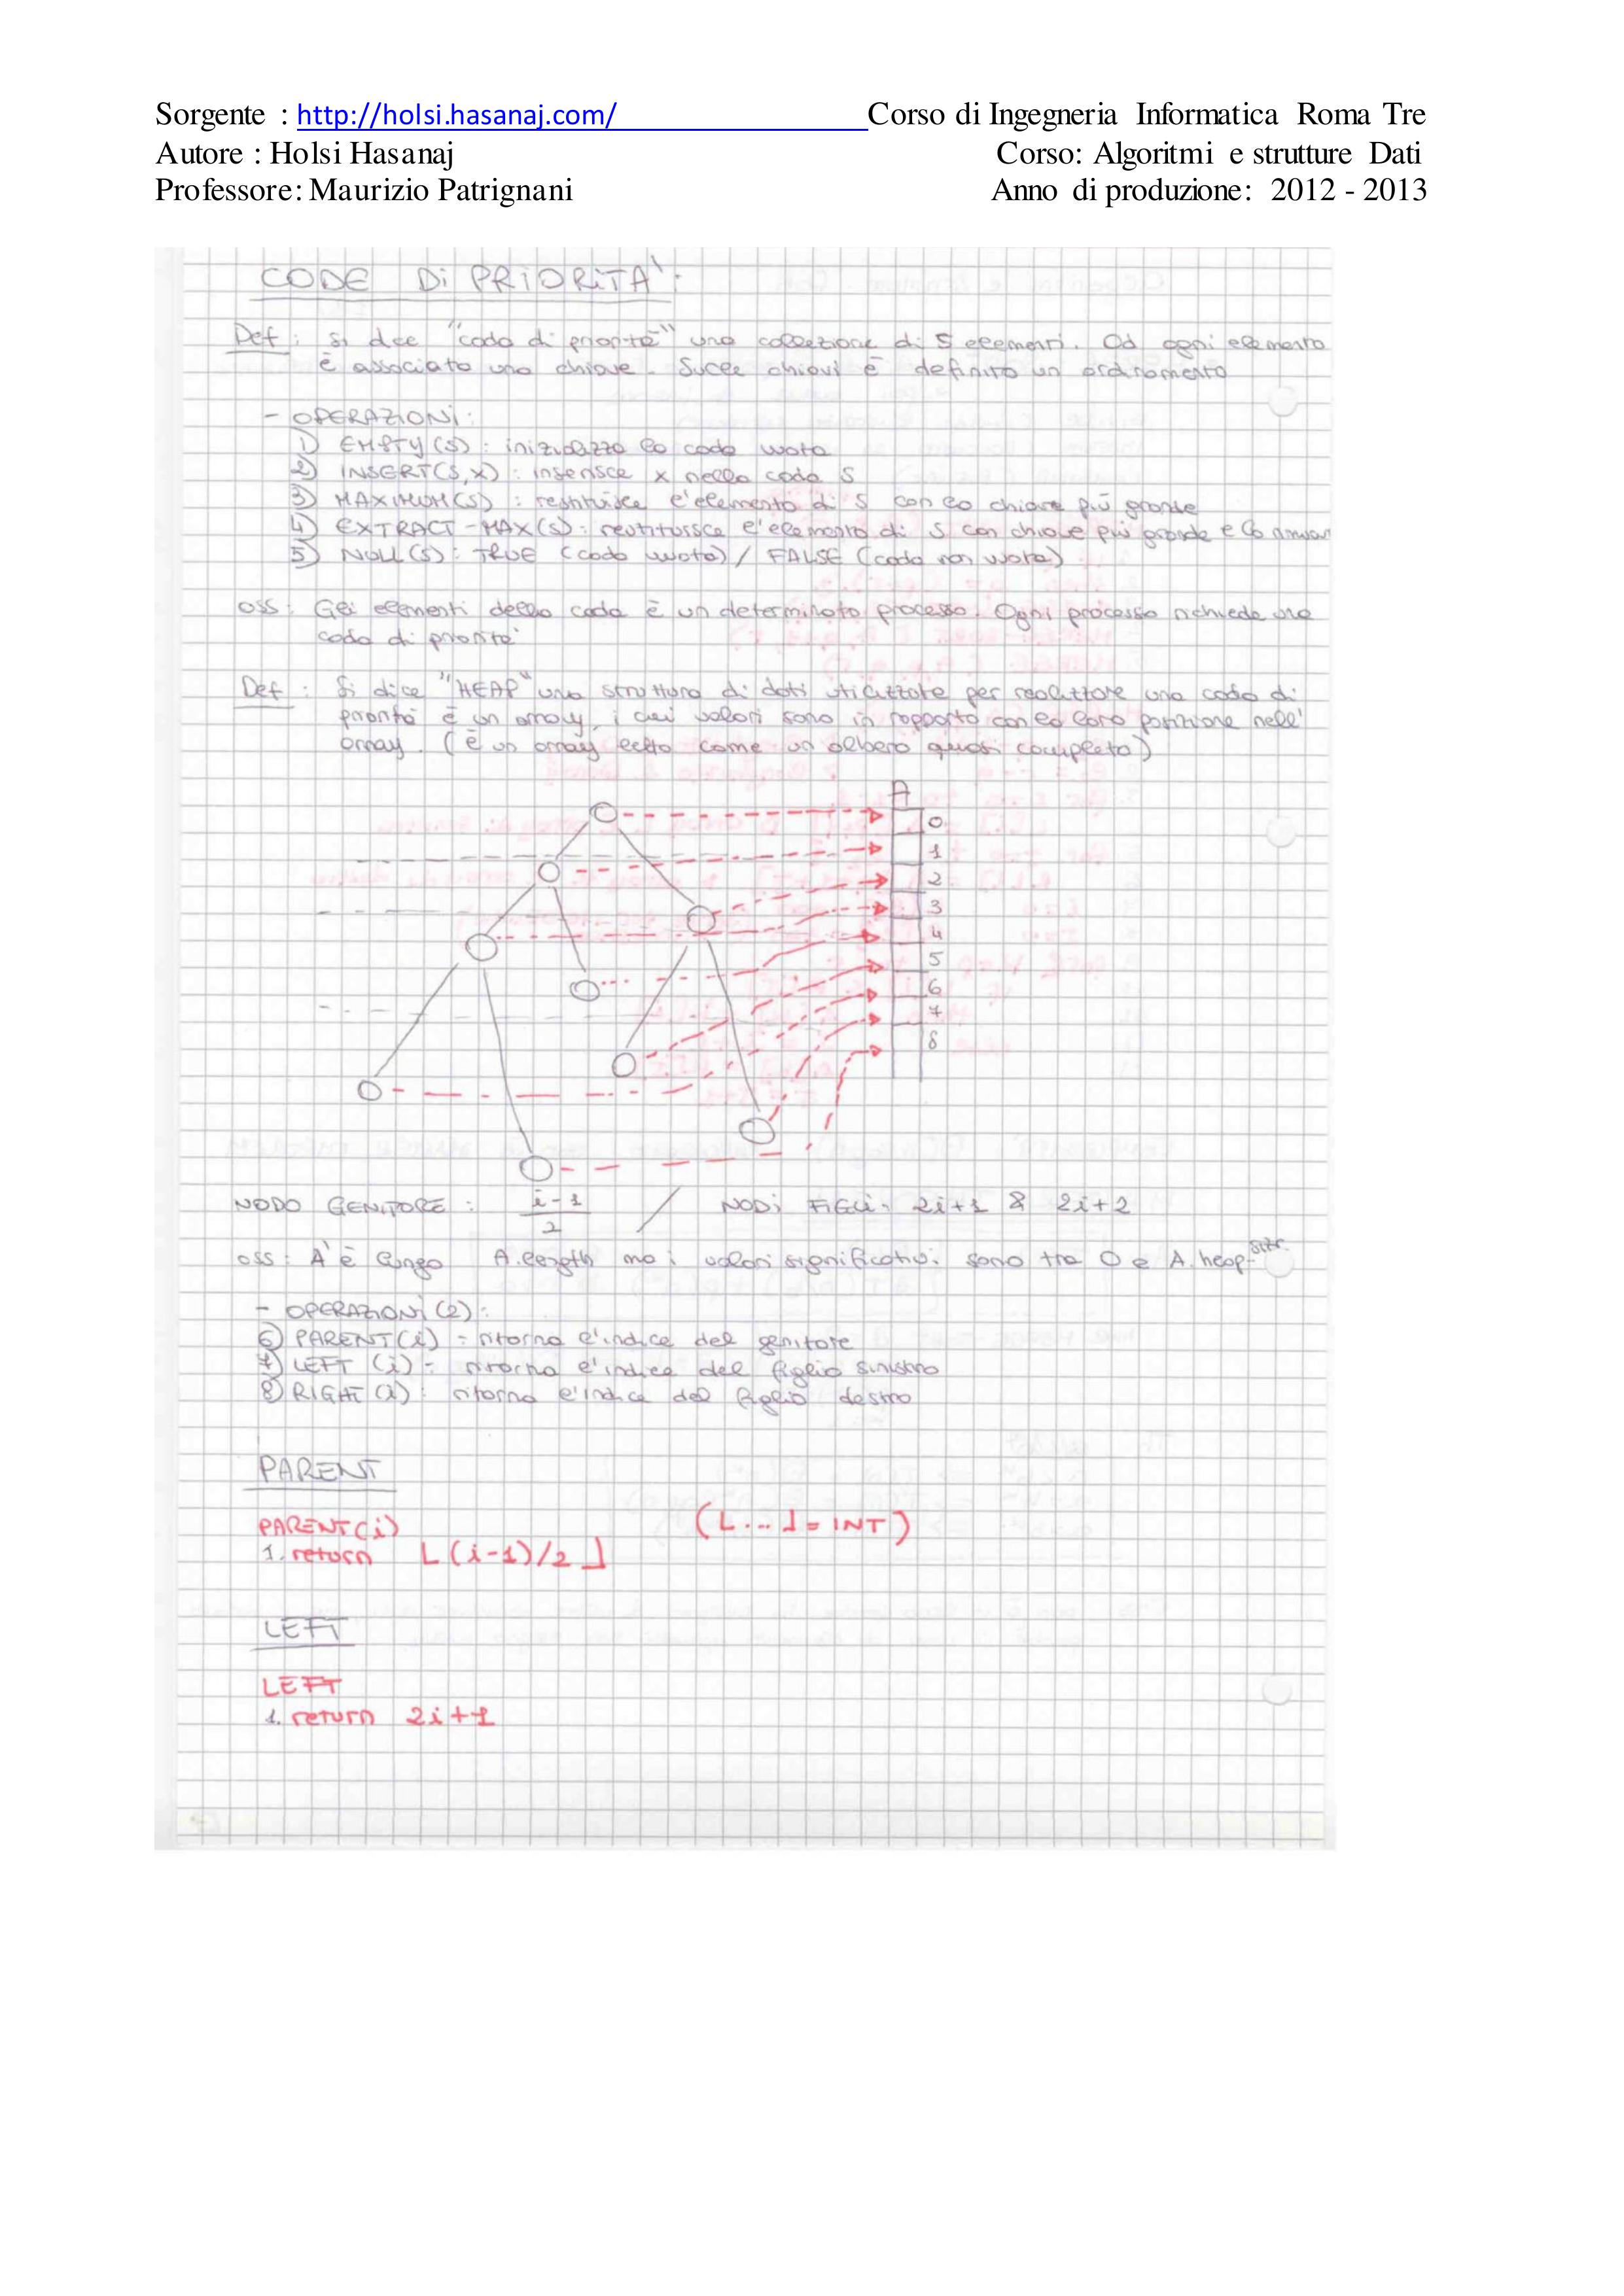 Sorgente : http://holsi.hasanaj.com/ Corso di Ingegneria Informatica Roma Tre
Autore : Holsi Hasanaj Corso: Algoritmi e strutture Dati
Professore: Maurizio Patrignani Anno di produzione: 2012 - 2013
CODE Di PRiORiTA':
Def: Si dice "coda di priorità" una collezione di S elementi. Ad ogni elemento
è associata una chiave. Sulle chiavi è definito un ordinamento
- OPERAZIONI:
1) EMPTY(S): inizializza la coda vuota
2) INSERT(S,X): inserisce x nella coda S
3) MAXIMUM(S): restituisce l'elemento di S con la chiave più grande
4) EXTRACT-MAX(S): restituisce l'elemento di S con chiave più grande e lo
5) NULL(S): TRUE (coda vuota) / FALSE (coda non vuota)
oss: Gli elementi della coda è un determinato processo. Ogni processo richiede una
coda di priorita'
Def: Si dice "HEAP" una struttura di dati utilizzate per realizzare una coda di
priorita' è un array, i cui valori sono in rapporto con la loro posizione nell'
array. (è un array letto come un albero quasi completo)
A
0
1
2
3
4
5
6
7
8
NODO GENITORE: i-1/2 / NODi FiGLi: 2i+1 & 2i+2
oss: A è lungo A.length ma i valori significativi sono tra 0 e A.heap-size
- OPERAZIONI(2):
6) PARENT(i): ritorna l'indice del genitore
7) LEFT(i): ritorna l'indice del figlio sinistro
8) RIGHT(i): ritorna l'indice del figlio destro
PARENT
PARENT(i) (⌊...⌋=INT)
1. return ⌊(i-1)/2⌋
LEFT
LEFT
1. return 2i+1